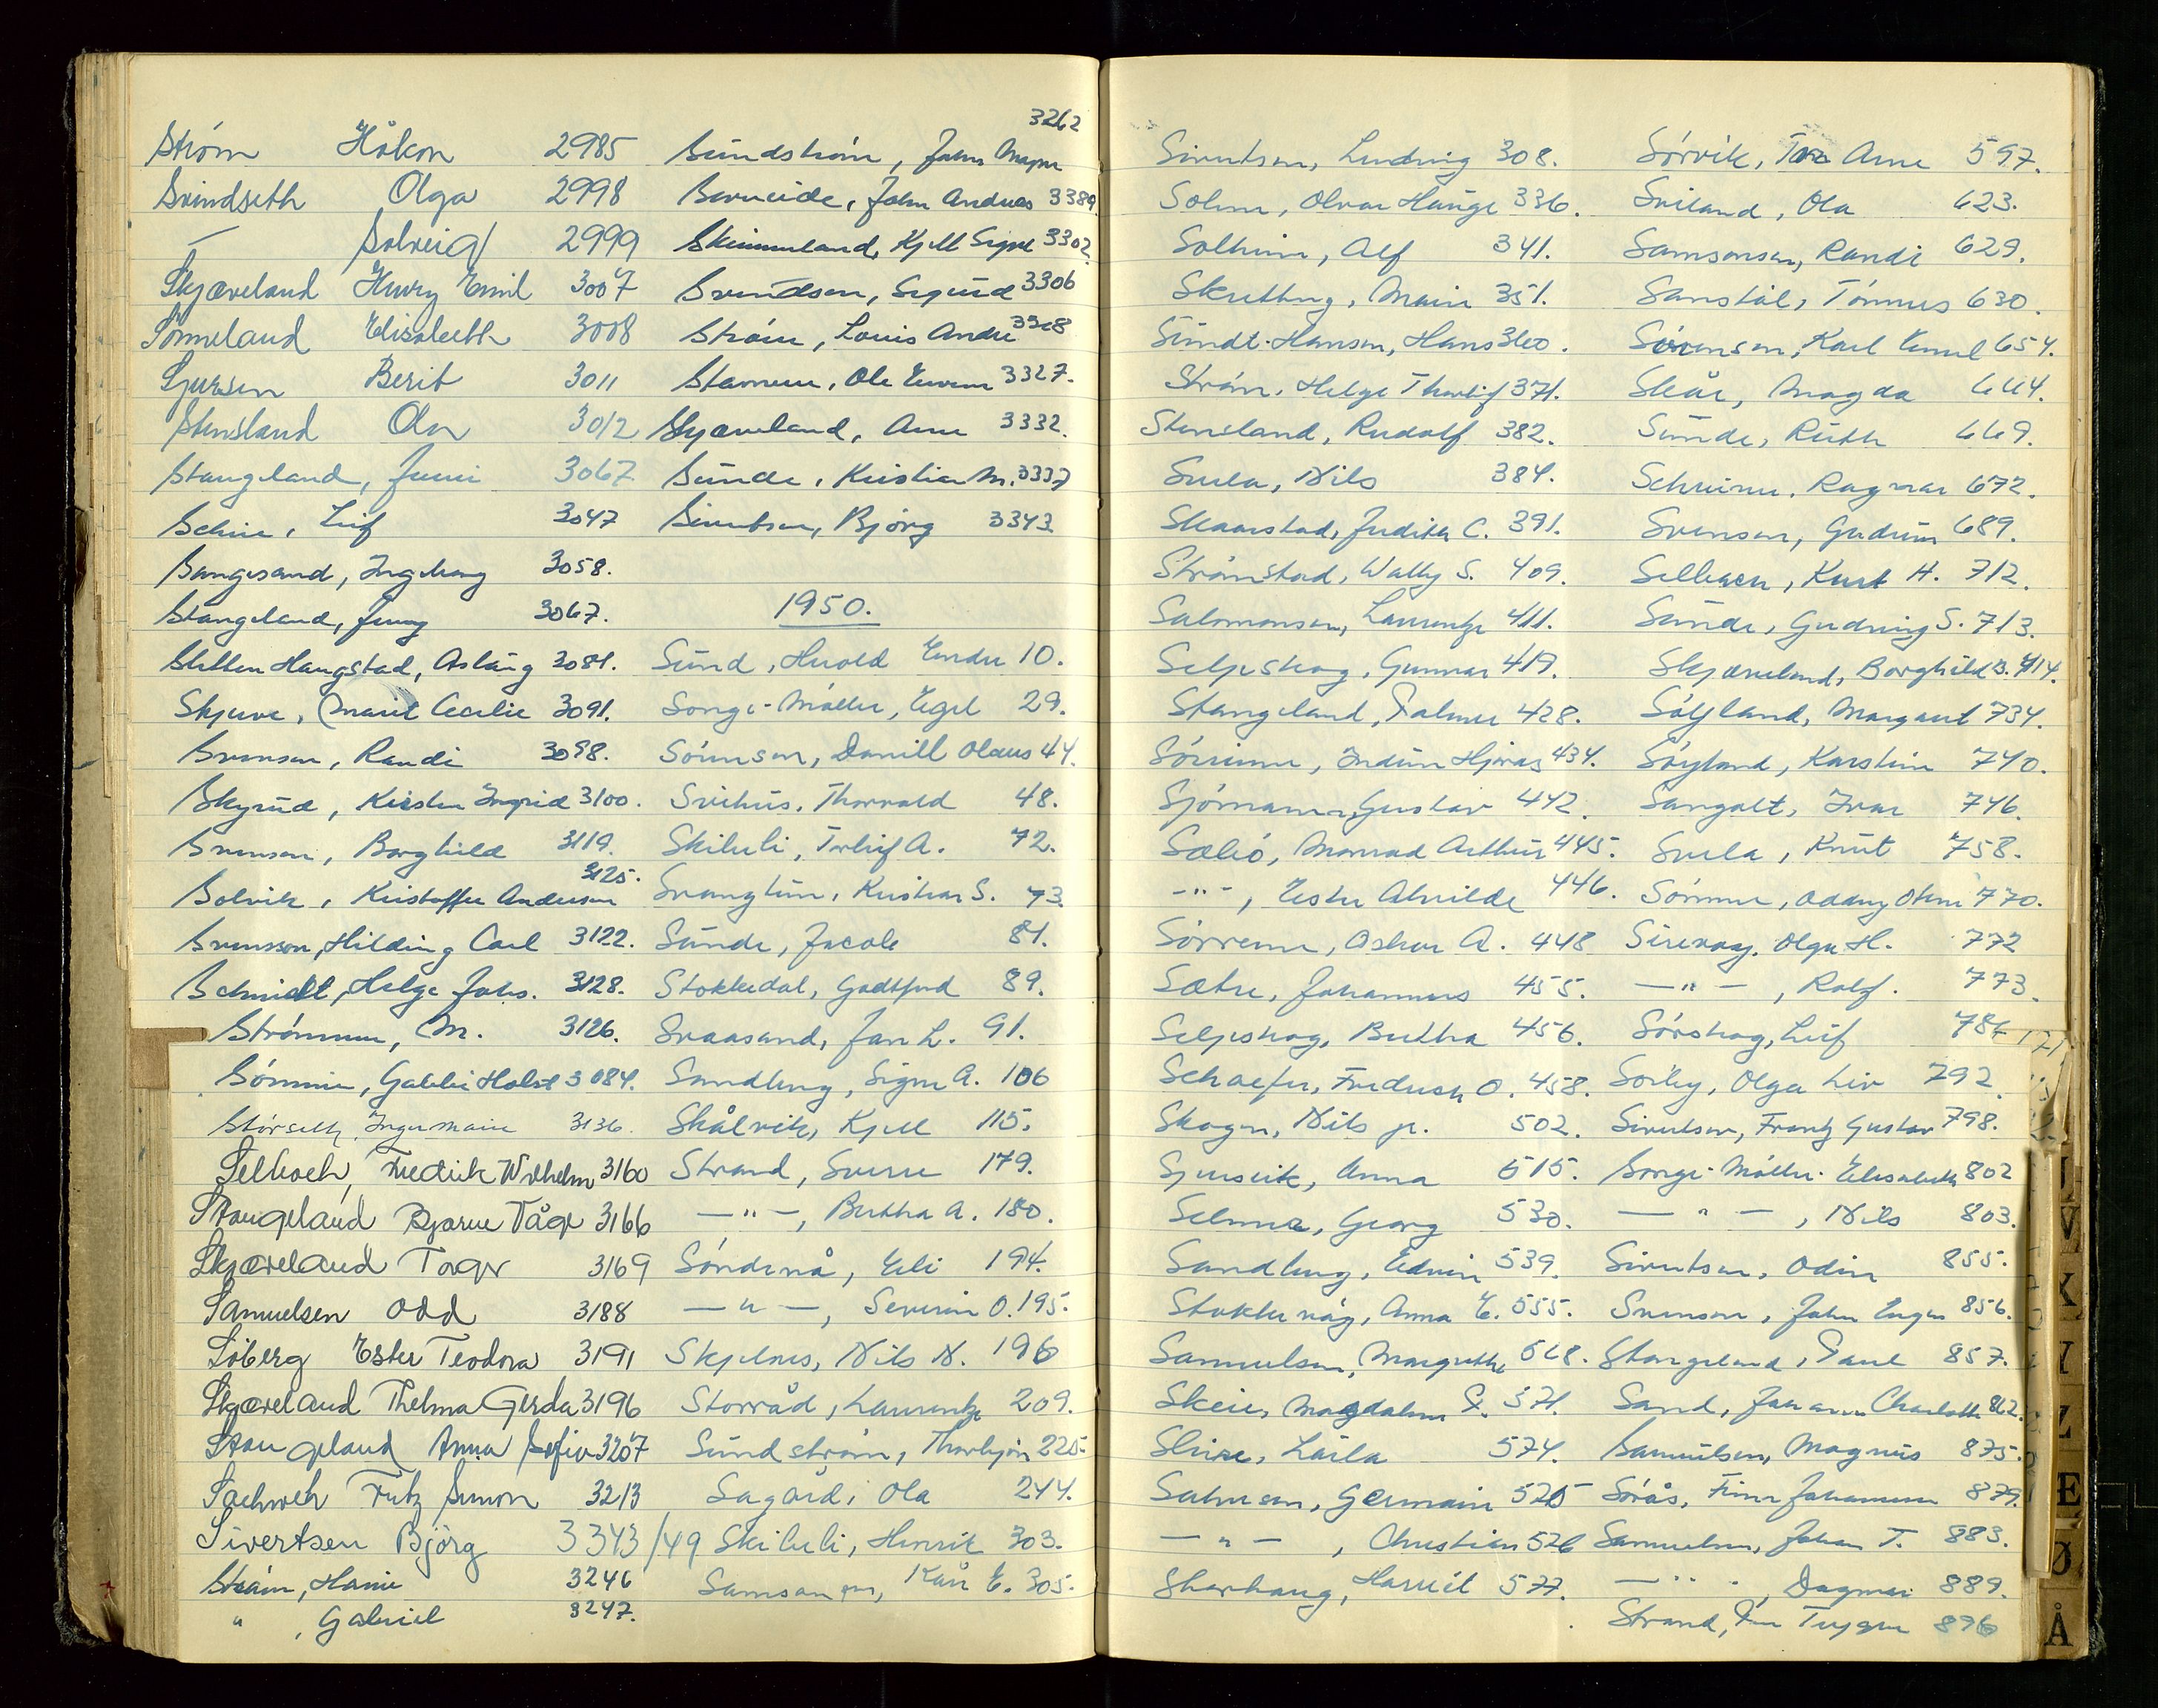 Strøm Håkon 2985
Svindseth Olga 2998
— Solveig 2999
Skjæveland Henry Emil 3007
Sømmeland Elisabeth 3008
Sjursen Berit 3011
Stensland Ola 3012
Stangeland, Jenni 3067
Schie, Leif 3047
Sangesand, Ingeborg 3058.
Stangeland, Jenny 3067.
Sletten Haugstad, Aslaug 3081.
Skjerve, Marie Cecilie 3091.
Svensen, Randi 3098.
Skyrud, Kirsten Ingrid 3100.
Svensen, Borghild 3119.
Solvik, Kristoffer Anderson 3125.
Svensson, Hilding Carl 3122.
Schmidt, Helge Johs. 3128.
Strømmen, M. 3126.
Sømme, Gabbi Holst 3084.
Størseth, Inger Marie 3136.
Selbach, Fredrik Wilhelm 3160
Stangeland Bjarne Tåge 3166
Skjæveland Torger 3169
Samuelsen Odd 3188
Søberg Ester Teodora 3191
Skjæveland Thelma Gerda 3196
Stangeland Anna Sofie 3207
Sachweh Fritz Simon 3213
Sivertsen Björg 3343/49
Strøm, Hanne 3246
" , Gabriel 3247.
3262
Sundstrøm, John Magne
Sørneide, John Andreas 3389.
Skimmeland, Kjell Signe 3302.
Svendsen, Sigurd 3306
Strøm, Louis Andre 3318
Stamnes, Ole Even 3327.
Skjæveland, Arne 3332.
Sunde, Kristian M. 3337
Sivertsen, Bjørg 3343
1950.
Sund, Harold Endre 10.
Songe-Møller, Egil 29.
Sørensen, Daniell Olaus 44.
Svihus, Thorvald 48.
Skileli, Torleif A. 72.
Svangtun, Kristian S. 73.
Sunde, Jacob 81.
Stokkedal, Godtfred 89.
Svaasand, Jan L. 91.
Sandberg, Signe A. 106
Skålvik, Kjell 115.
Strand, Sverre 179.
— " —, Bertha A. 180.
Søndenå, Eli 194.
— " —, Severin O. 195.
Skjelnes, Nils N. 196
Storråd, Laurentze 209.
Sundstrøm, Thorbjørn 225.
Sagård, Ola 244.
Skileli, Henrik 303.
Samsonsen, Kåre E. 305.
Sivertsen, Ludvig 308.
Solem, Olvar Hauge 336.
Solheim, Alf 341.
Skretting, Marie 351.
Sundt-Hansen, Hans 360.
Strøm, Helge Thorleif 371.
Stensland, Rudolf 382.
Suela, Nils 384.
Skaarstad, Judith C. 391.
Strømstad, Wally S. 409.
Salomonsen, Laurentze 411.
Seljeskog, Gunnar 417.
Stangeland, Palmer 428.
Sørenen, Indun Hjørdis 434.
Sjömann, Gustav 442.
Sæbø, Konrad Arthur 445.
-"-, Ester Alvilde 446.
Sørrenn, Oskar A. 448
Sætre, Johannes 455.
Seljeskog, Bertha 456.
Schaefer, Frederick O. 458.
Skogen, Nils jr. 502.
Sjursvik, Anna 515.
Selmer, Georg 530.
Sandberg, Edvin 539.
Stokkevåg, Anna E. 555.
Samuelsen, Margrethe 568.
Skeie, Magdalene S. 571.
Skeie, Laila 574.
Salvesen, Germain 525
— " —, Christian 526
Skarhaug, Harriet 577.
Sørvik, Tor Arne 597.
Sviland, Ola 623.
Samsonsen, Randi 629.
Sanstøl, Tønnes 630.
Sørensen, Karl Emil 654.
Skår, Magda 664.
Sunde, Ruth 669.
Schreiner, Ragnar 672.
Svensen, Gudrun 689.
Selbach, Kurt H. 712.
Sunde, Gudning S. 713.
Skjæveland, Borghild B. 714.
Søyland, Margaret 734.
Søyland, Karstein 740.
Sangolt, Ivar 746.
Suela, Knut 758.
Sømme, Oddny Othene 770.
Sirevaag, Olga H. 772
— " —, Rolf. 773.
Sørskog, Leif 786
Sørby, Olga Liv 792
Sivertsen, Frantz Gustav 798.
Songe-Møller Elisabeth 802
— " —, Nils 803.
Sivertsen, Odin 855.
Svensen, John Inger 856.
Stangeland, Paul 857.
Sand, Johanne Charlotte 862.
Samuelsen, Magnus 875.
Sørås, Finn Johannes 879.
Samuelsen, Johan T. 883.
— " —, Dagmar 889.
Strand, Per Trygve 896
V
K
Y
Z
Æ
Ø
Å